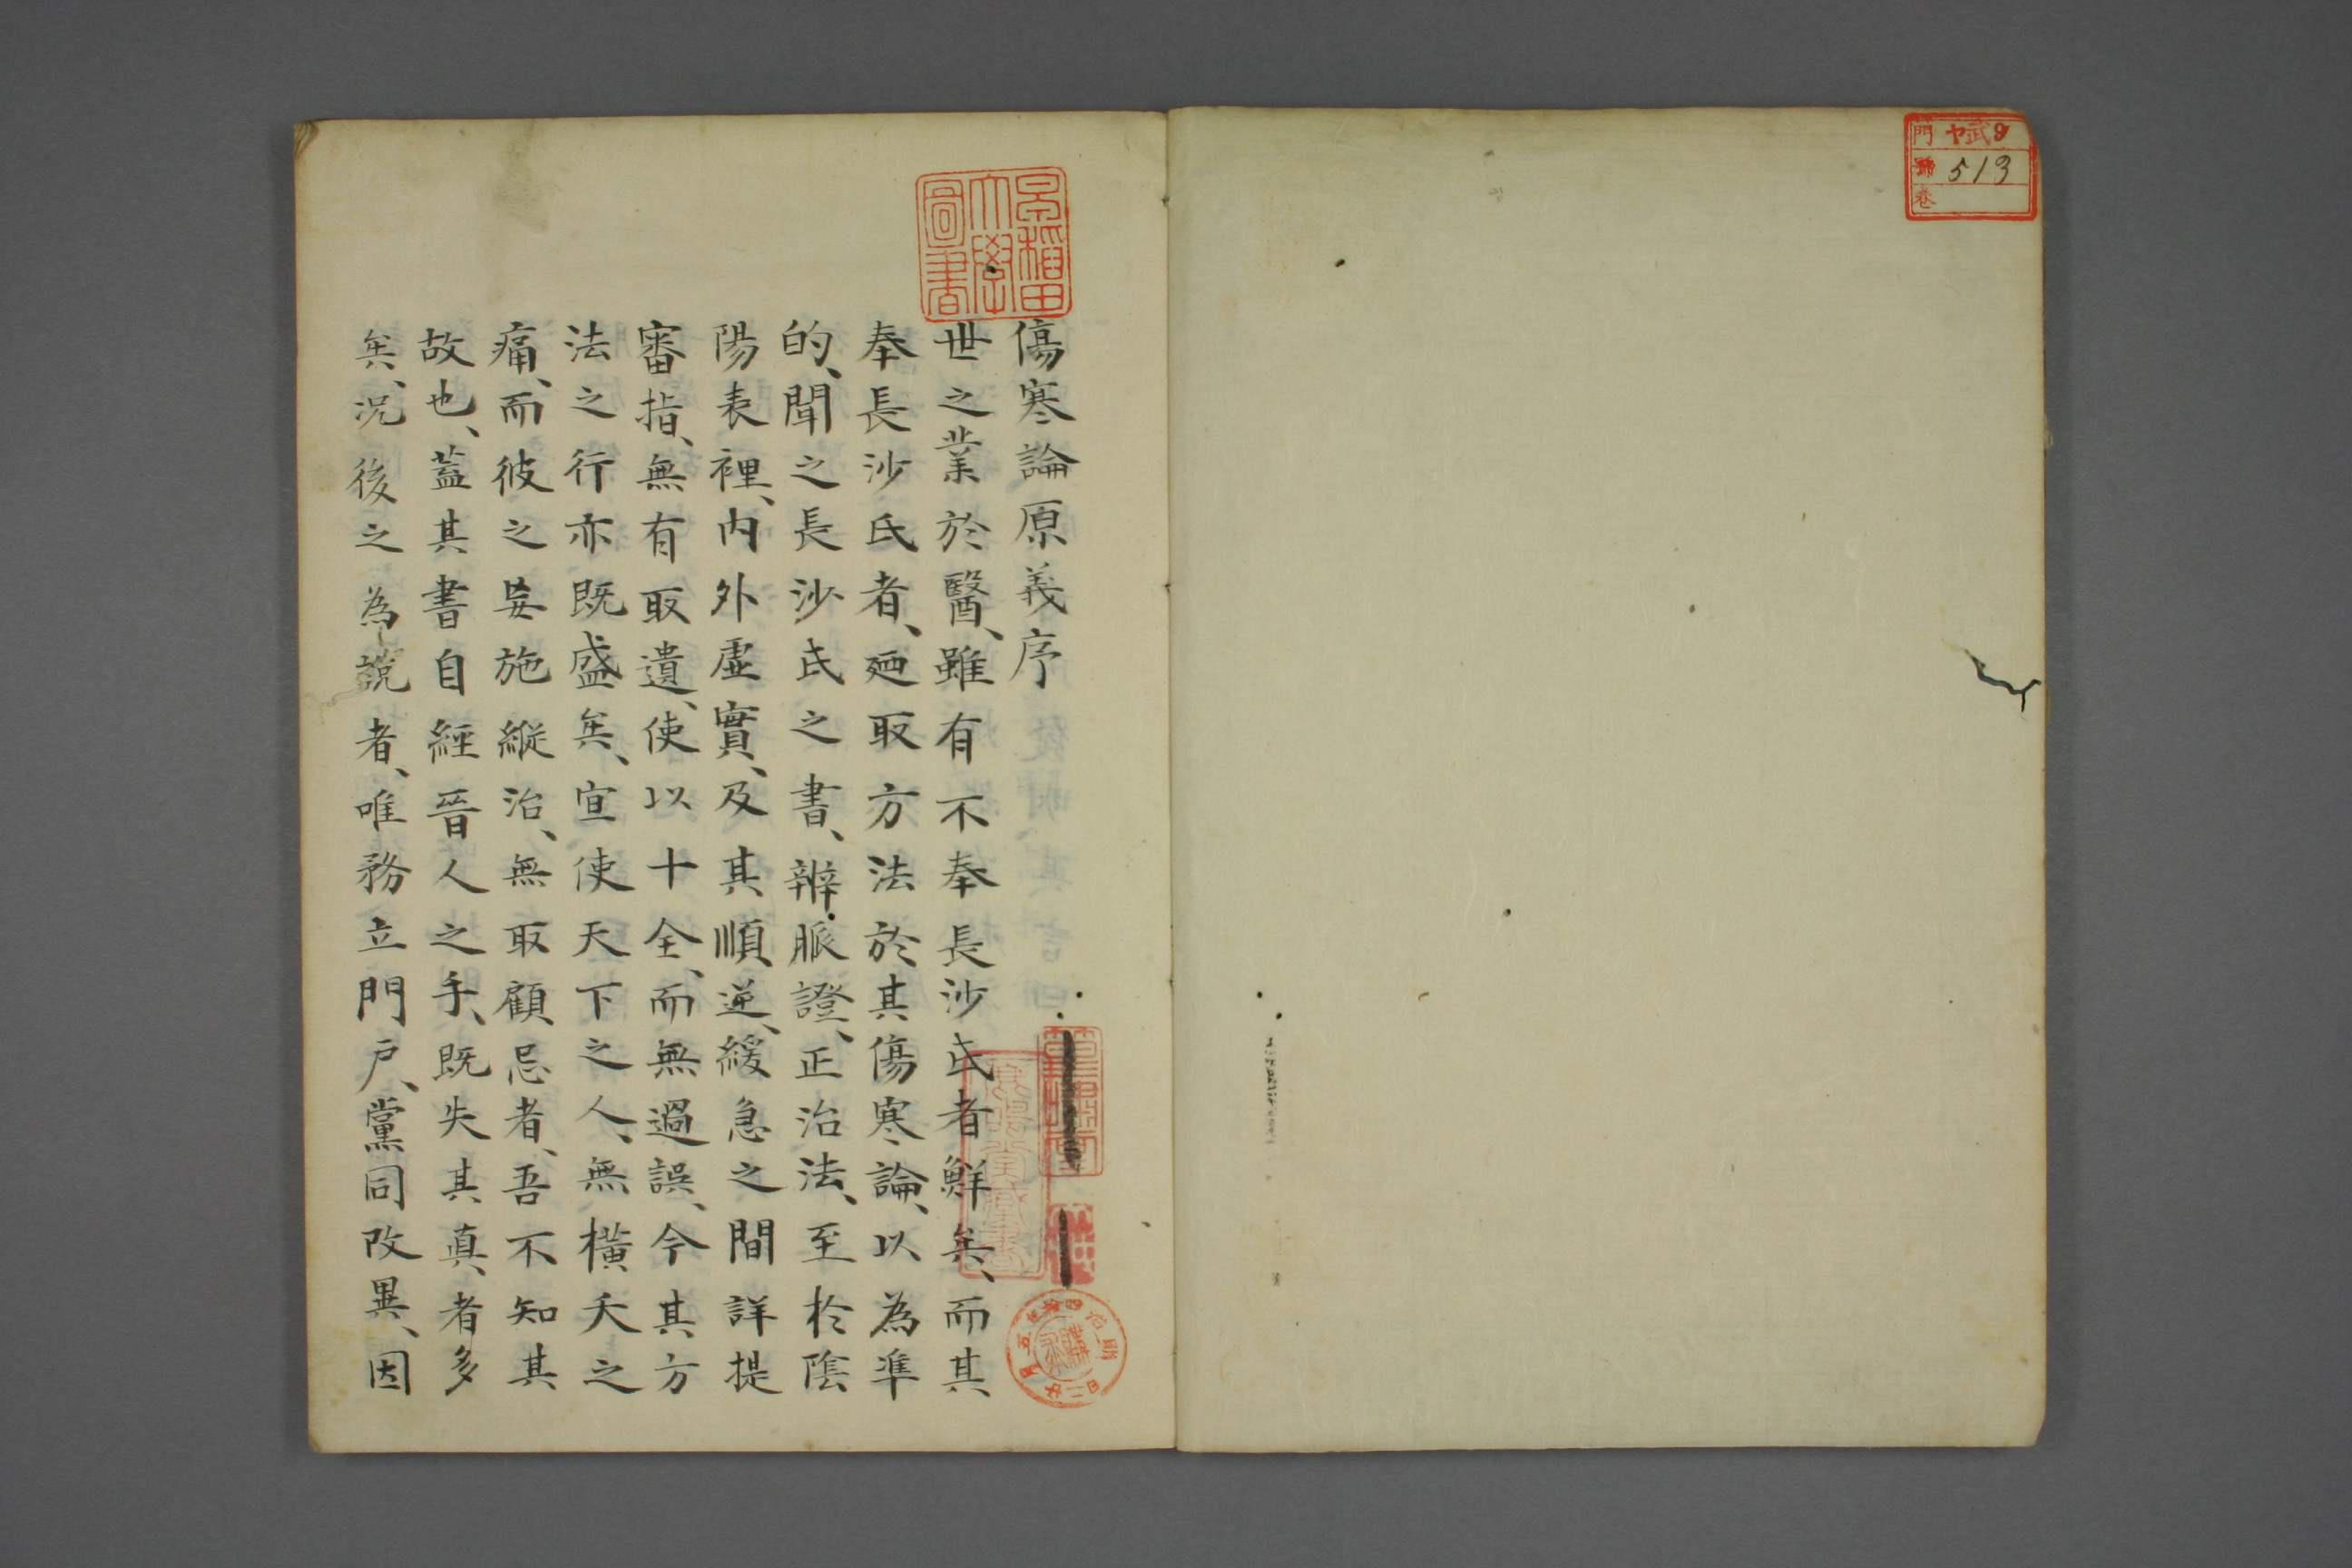 門 ヤ武9
號 513
卷
早稲田大學圖書
傷寒論原義序
世之業於醫、雖有不奉長沙氏者鮮矣、而其
奉長沙氏者、廼取方法於其傷寒論、以為準
的、聞之長沙氏之書、辨脈證、正治法、至於陰
陽表裡、内外虛實、及其順逆、緩急之間詳提
審指、無有取遺、使以十全、而無過誤、今其方
法之行亦既盛矣、宜使天下之人、無横夭之
痛、而彼之妄施縱治、無取顧忌者、吾不知其
故也、蓋其書自經晉人之手、既失其真、者多
矣、况後之為說者、唯務立門戶、黨同攻異、因